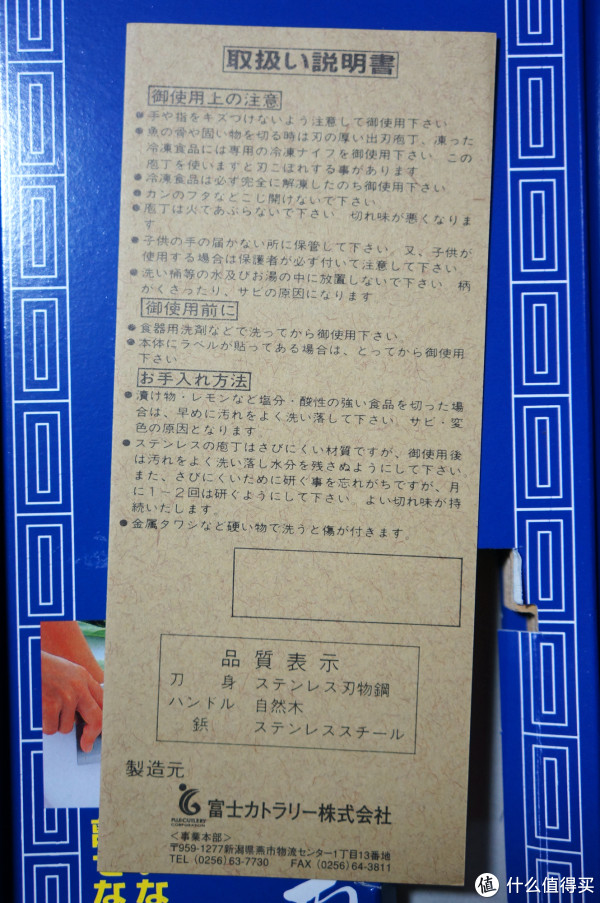 取扱い説明書
御使用上の注意
●手や指をキズつけないよう注意して御使用下さい
●魚の骨や固い物を切る時は刃の厚い出刃庖丁、凍った
冷凍食品には専用の冷凍ナイフを御使用下さい この
庖丁を使いますと刃こぼれする事があります
●冷凍食品は必ず完全に解凍したのち御使用下さい
●カンのフタなどこじ開けないで下さい
●庖丁は火であぶらないで下さい 切れ味が悪くなりま
す
●子供の手の届かない所に保管して下さい。又、子供が
使用する場合は保護者が必ず付いて注意して下さい。
●洗い桶等の水及びお湯の中に放置しないで下さい 柄
がくさったり、サビの原因になります
御使用前に
●食器用洗剤などで洗ってから御使用下さい
●本体にラベルが貼ってある場合は、とってから御使用
下さい
お手入れ方法
●漬け物・レモンなど塩分・酸性の強い食品を切った場
合は、早めに汚れをよく洗い落して下さい。サビ・変
色の原因となります
●ステンレスの庖丁はさびにくい材質ですが、御使用後
は汚れをよく洗い落し水分を残さぬようにして下さい
また、さびにくいために研ぐ事を忘れがちですが、月
に1〜2回は研ぐようにして下さい。よい切れ味が持
続いたします。
●金属タワシなど硬い物で洗うと傷が付きます。
品質表示
刀身 ステンレス刃物鋼
ハンドル 自然木
鋲 ステンレススチール
製造元
富士カトラリー株式会社
<事業本部>
〒959-1277新潟県燕市物流センター1丁目13番地
TEL (0256)63-7730 FAX (0256)64-3811
值 什么值得买